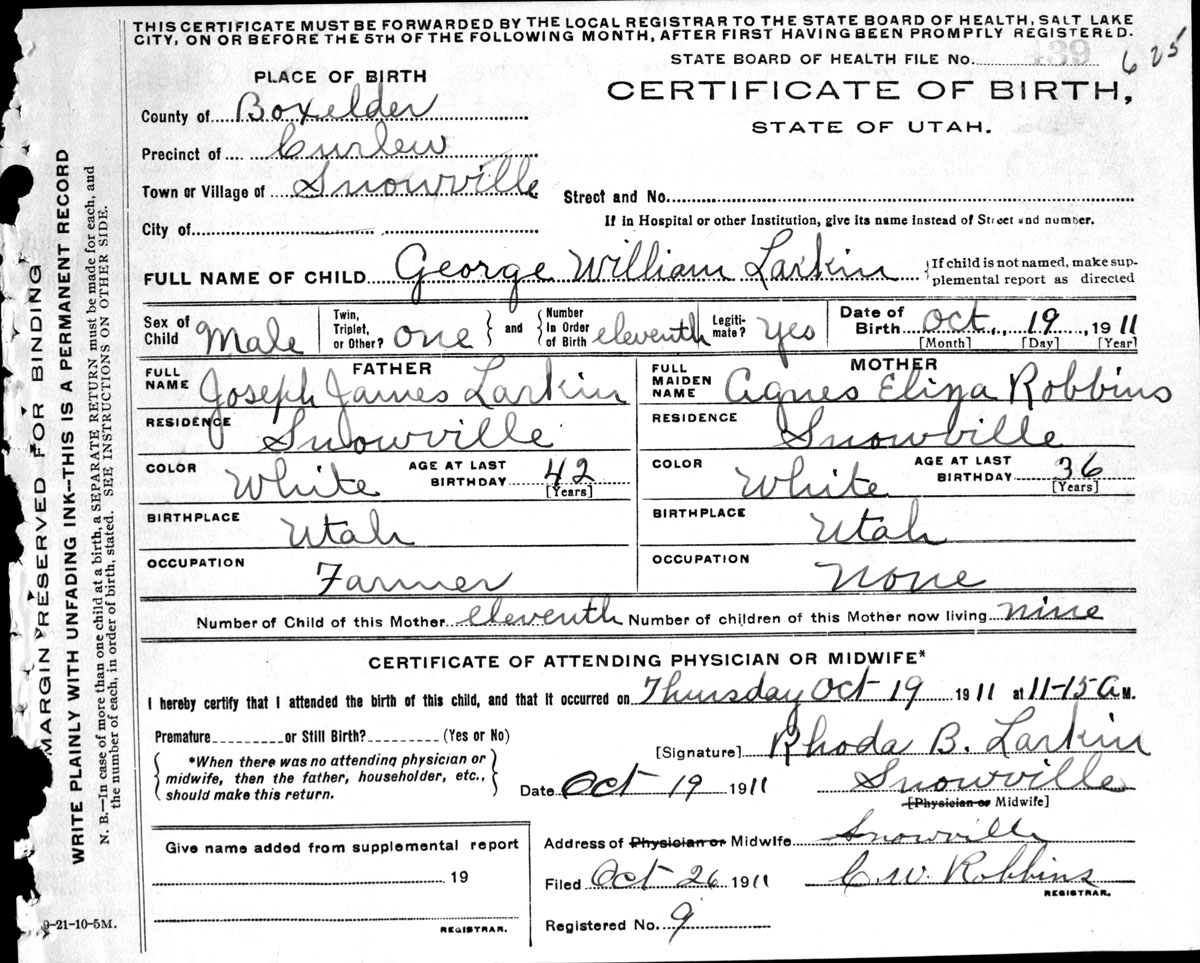 THIS CERTIFICATE MUST BE FORWARDED BY THE LOCAL REGISTRAR TO THE STATE BOARD OF HEALTH, SALT LAKE
CITY, ON OR BEFORE THE 5TH OF THE FOLLOWING MONTH, AFTER FIRST HAVING BEEN PROMPTLY REGISTERED.
STATE BOARD OF HEALTH FILE No. 625
PLACE OF BIRTH
CERTIFICATE OF BIRTH,
STATE OF UTAH.
County of Boxelder
Precinct of Curlew
Town or Village of Snowville
Street and No.
City of
If in Hospital or other Institution, give its name instead of Street and number.
FULL NAME OF CHILD George William Larkin
If child is not named, make sup-
plemental report as directed
Sex of Child Male
Twin, Triplet, or Other? one
and Number in Order of Birth eleventh
Legiti-mate? Yes
Date of Birth Oct, 19, 1911
[Month] [Day] [Year]
FATHER
FULL NAME Joseph James Larkin
RESIDENCE Snowville
COLOR White AGE AT LAST BIRTHDAY 42
[Years]
BIRTHPLACE Utah
OCCUPATION Farmer
MOTHER
FULL MAIDEN NAME Agnes Eliza Robbins
RESIDENCE Snowville
COLOR White AGE AT LAST BIRTHDAY 36
[Years]
BIRTHPLACE Utah
OCCUPATION None
Number of Child of this Mother eleventh Number of children of this Mother now living nine
CERTIFICATE OF ATTENDING PHYSICIAN OR MIDWIFE*
I hereby certify that I attended the birth of this child, and that it occurred on Thursday Oct 19 1911 at 11-15 A M.
Premature or Still Birth? (Yes or No)
*When there was no attending physician or
midwife, then the father, householder, etc.,
should make this return.
[Signature] Rhoda B. Larkin
Date Oct 19 1911 Snowville
[Physician or Midwife]
Give name added from supplemental report
19
REGISTRAR.
Address of Physician or Midwife Snowville
Filed Oct 26 1911 C. W. Robbins
REGISTRAR.
Registered No. 9
9-21-10-5M.
MARGIN RESERVED FOR BINDING
WRITE PLAINLY WITH UNFADING INK--THIS IS A PERMANENT RECORD
N. B.—In case of more than one child at a birth, a SEPARATE RETURN must be made for each, and
the number of each, in order of birth, stated. SEE INSTRUCTIONS ON OTHER SIDE.